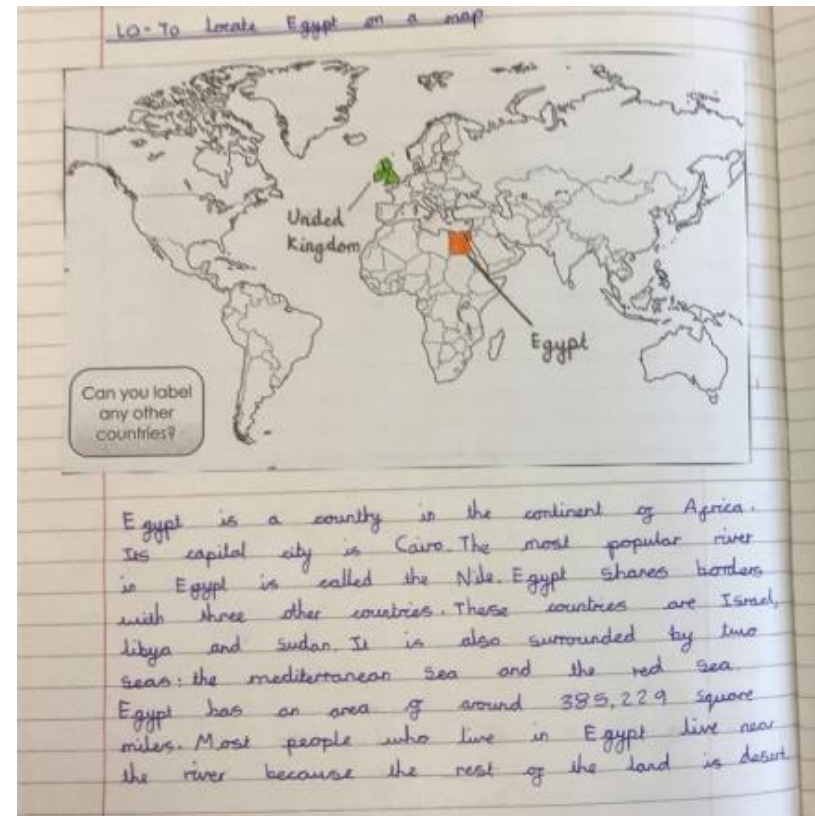 LO - To locate Egypt on a map
United
Kingdom
Egypt
Can you label
any other
countries?
Egypt is a country in the continent of Africa.
Its capital city is Cairo. The most popular river
in Egypt is called the Nile. Egypt shares borders
with three other countries. These countries are Israel,
libya and Sudan. It is also surrounded by two
seas: the mediterranean sea and the red sea.
Egypt has an area of around 385,229 square
miles. Most people who live in Egypt live near
the river because the rest of the land is desert.